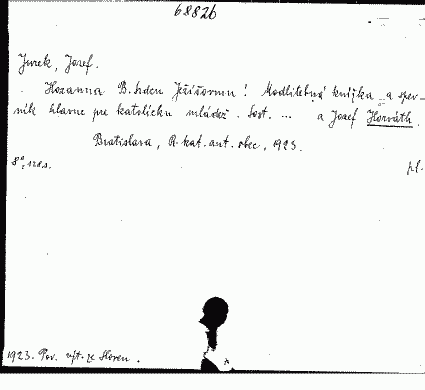 68826
Jurek, Josef.
Hozanna B. Srdcu Ježišovmu! Modlitebná knižka a spev-
ník hlavne pre katolícku mládež. Sost. ... a Josef Horváth.
Bratislava, R. kat. ant. obec, 1923.
8°, 128 s.
pl.
1923. Pov. výt. ze Sloven.